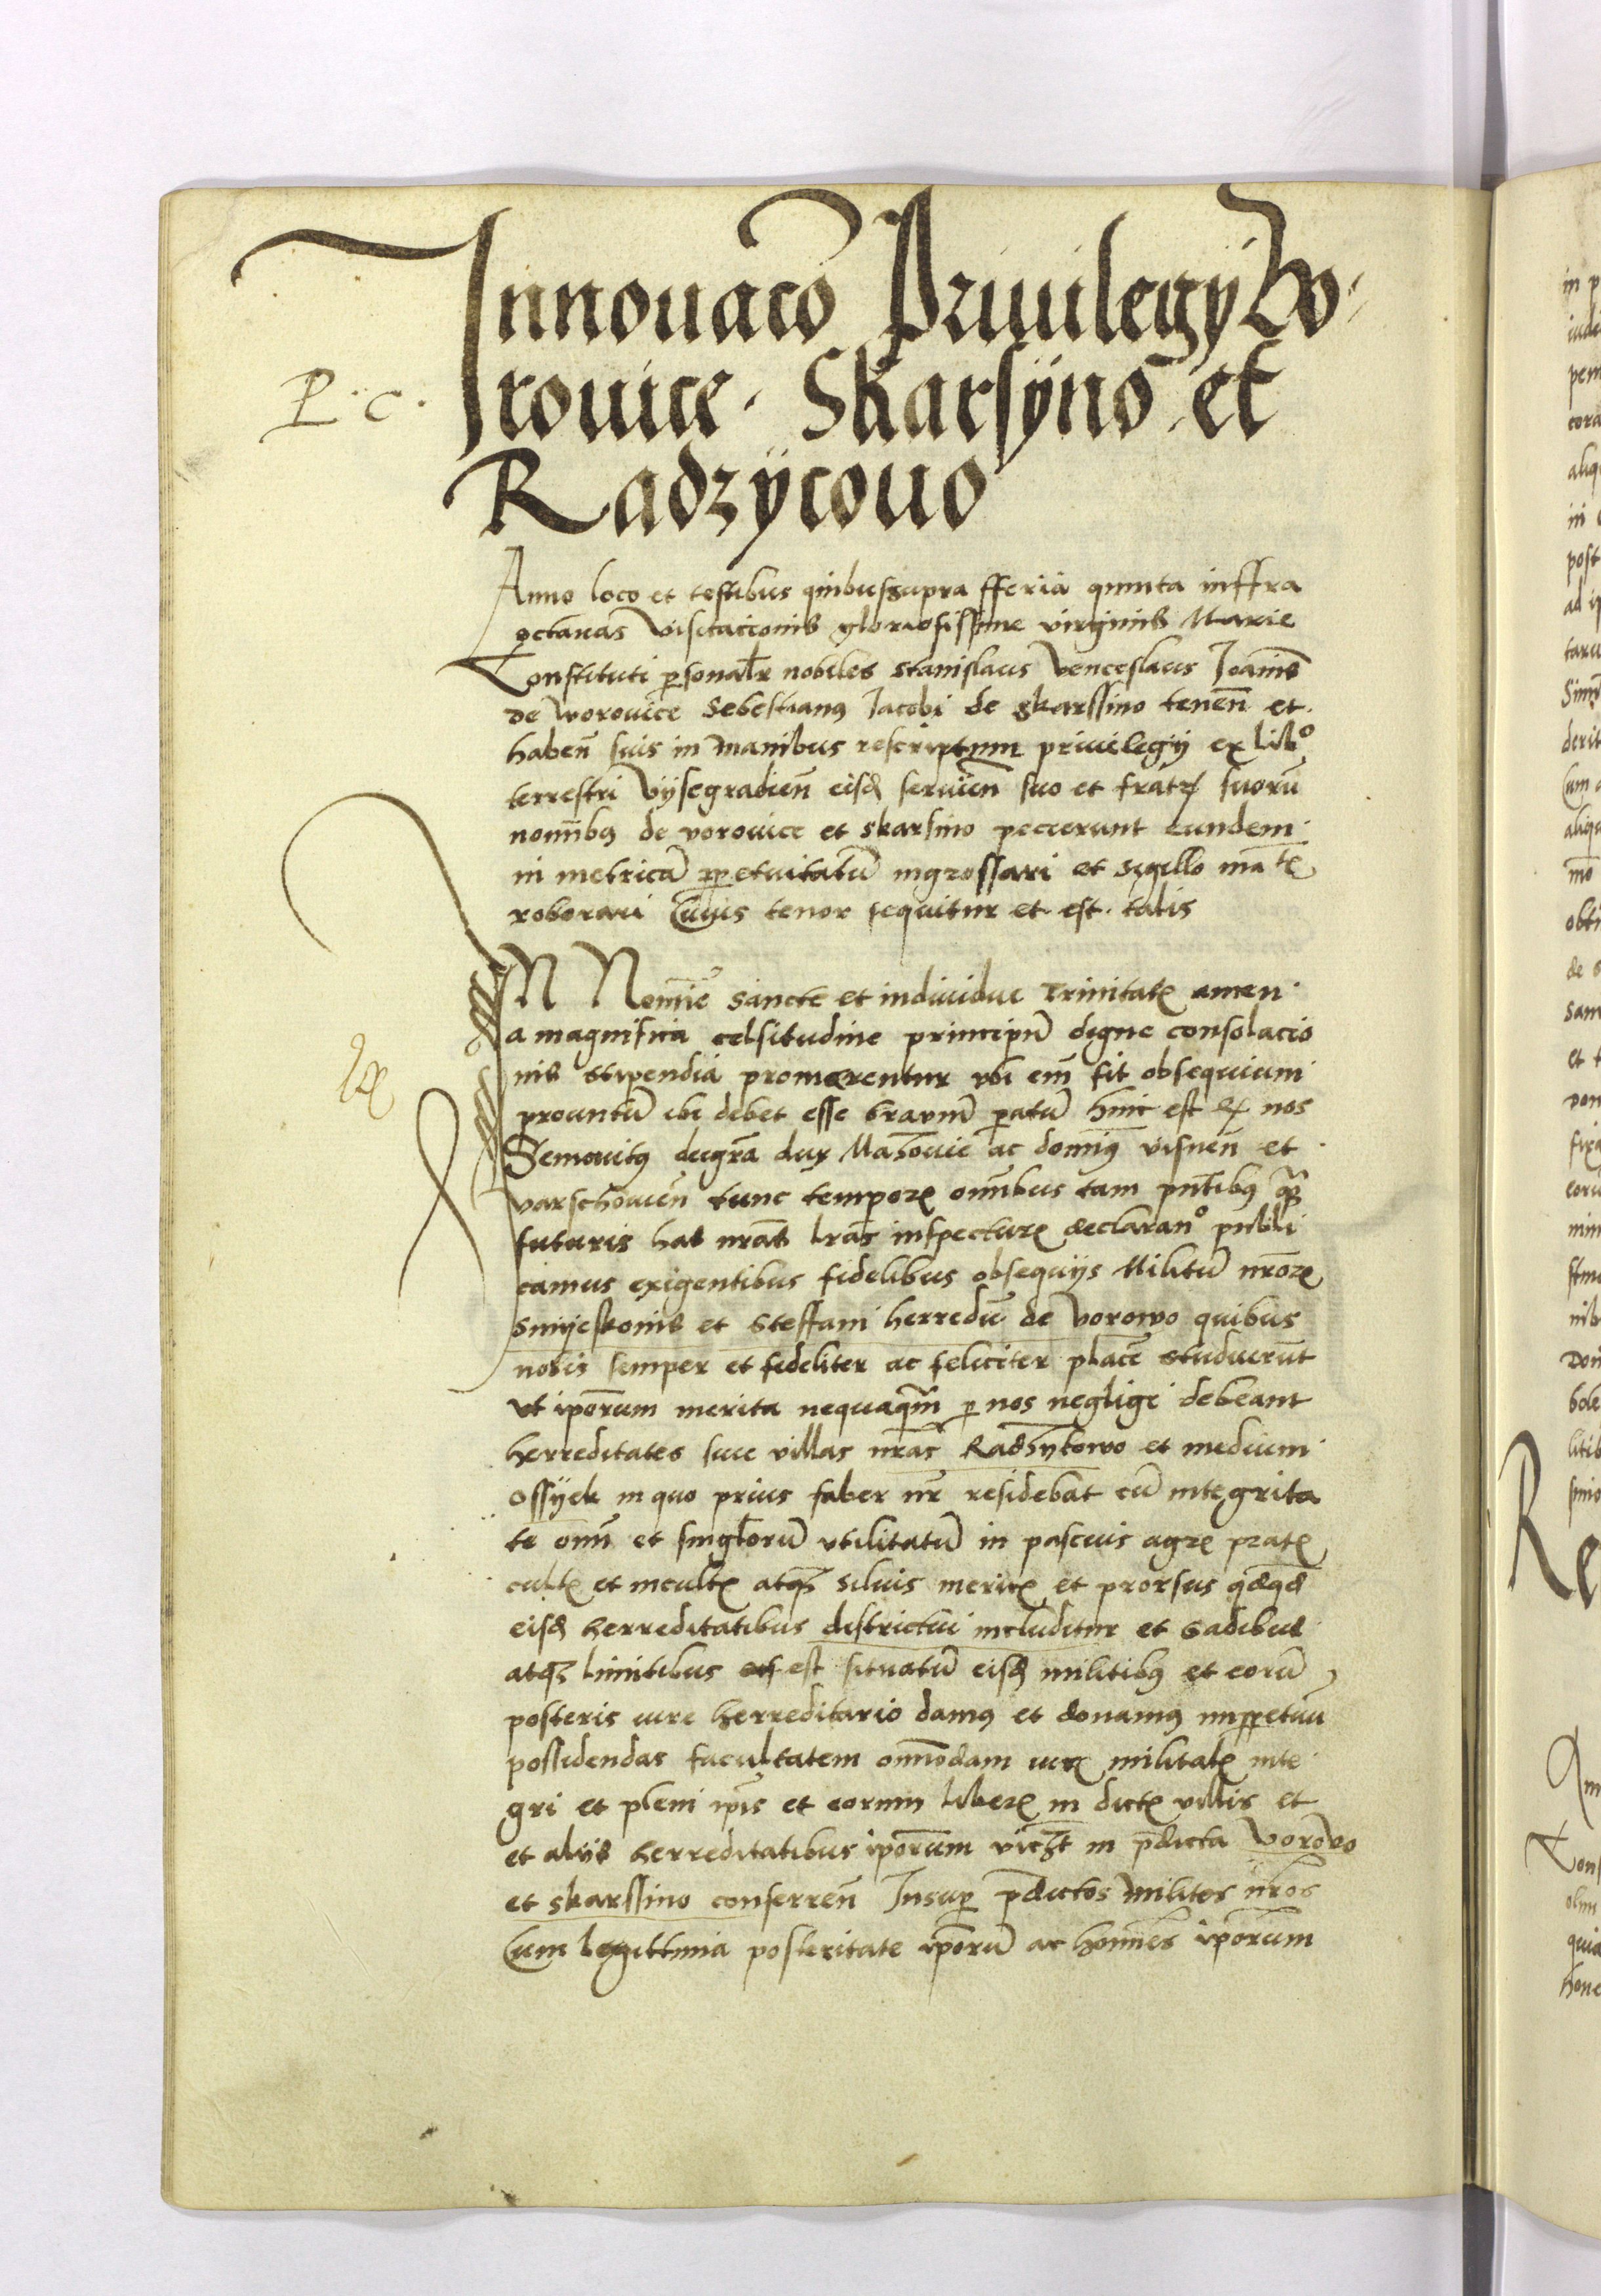 Innouacō Priuilegÿ Wo
rouice · Skarsÿno et
Radzÿcouo
P · c ·
Anno loco et testibus quibus supra fferia quinta inffra
octauas visitacionis gloriosissime virginis Marie
Constituti personalr nobiles stanislaus Venceslaus Joannis
de worouice Sebestianus Jacobi de skarssino tenen̄ et
haben̄ suis in manibus rescriptum priuilegij ex libo
terrestri Vysegradien̄ eisd seruien̄ suo et fratrꝝ suorū
nominibus de vorouice et skarsino petierunt eundem
in metricā perpetuitatū ingrossari et sigillo
roborari Cuius tenor sequitur et est talis
IN Nomīe sancte et indiuidue Trinitatꝭ amen
a magnifica celsitudine principū digne consolacio
nis stipendia promerentur vbi em̄ fit obsequium
ibi debet esse hinc est nos
Semouitus deigrā dux Mazouie ac dominus visnen̄ et
varschouien̄ tunc temporꝭ omnibus tam pn̄tibus
futuris has nrās lrās inspecturꝭ declarano publi
camus exigentibus fidelibus obsequijs Militū nrōrꝭ
smijeskonis et steffani herredū de vorowo quibus
nobis semper et fideliter ac feliciter placē studuerunt
vt ipōrum merita nequaqm̄ p nos negligi debeant
herreditates siue villas nrās Radzykowo et medium
ossÿek in quo prius faber nr̄ residebat cū integrita
te omn̄ et singlorū vtilitatū in pascuis agrꝭ pratꝭ
cultꝭ et incultꝭ atqꝫ siluis mericꝭ et prorsus
eisd herreditatibus districtui includitur et gadibus
atqꝫ limitibus est situatū eisd militibus et eorū
posteris iure herreditario damus et donamus
possidendas facultatem omnodam iurꝭ militalꝭ inte
gri et pleni ipīs et eorum liberꝭ in dictꝭ villis et
et alijs herreditatibus ipōrum in pdicta vorowo
et skarssino conferren̄ Insup pdictos milites nr̄os
Cum legittimia posteritate ipōrū ac homīes ipōrum